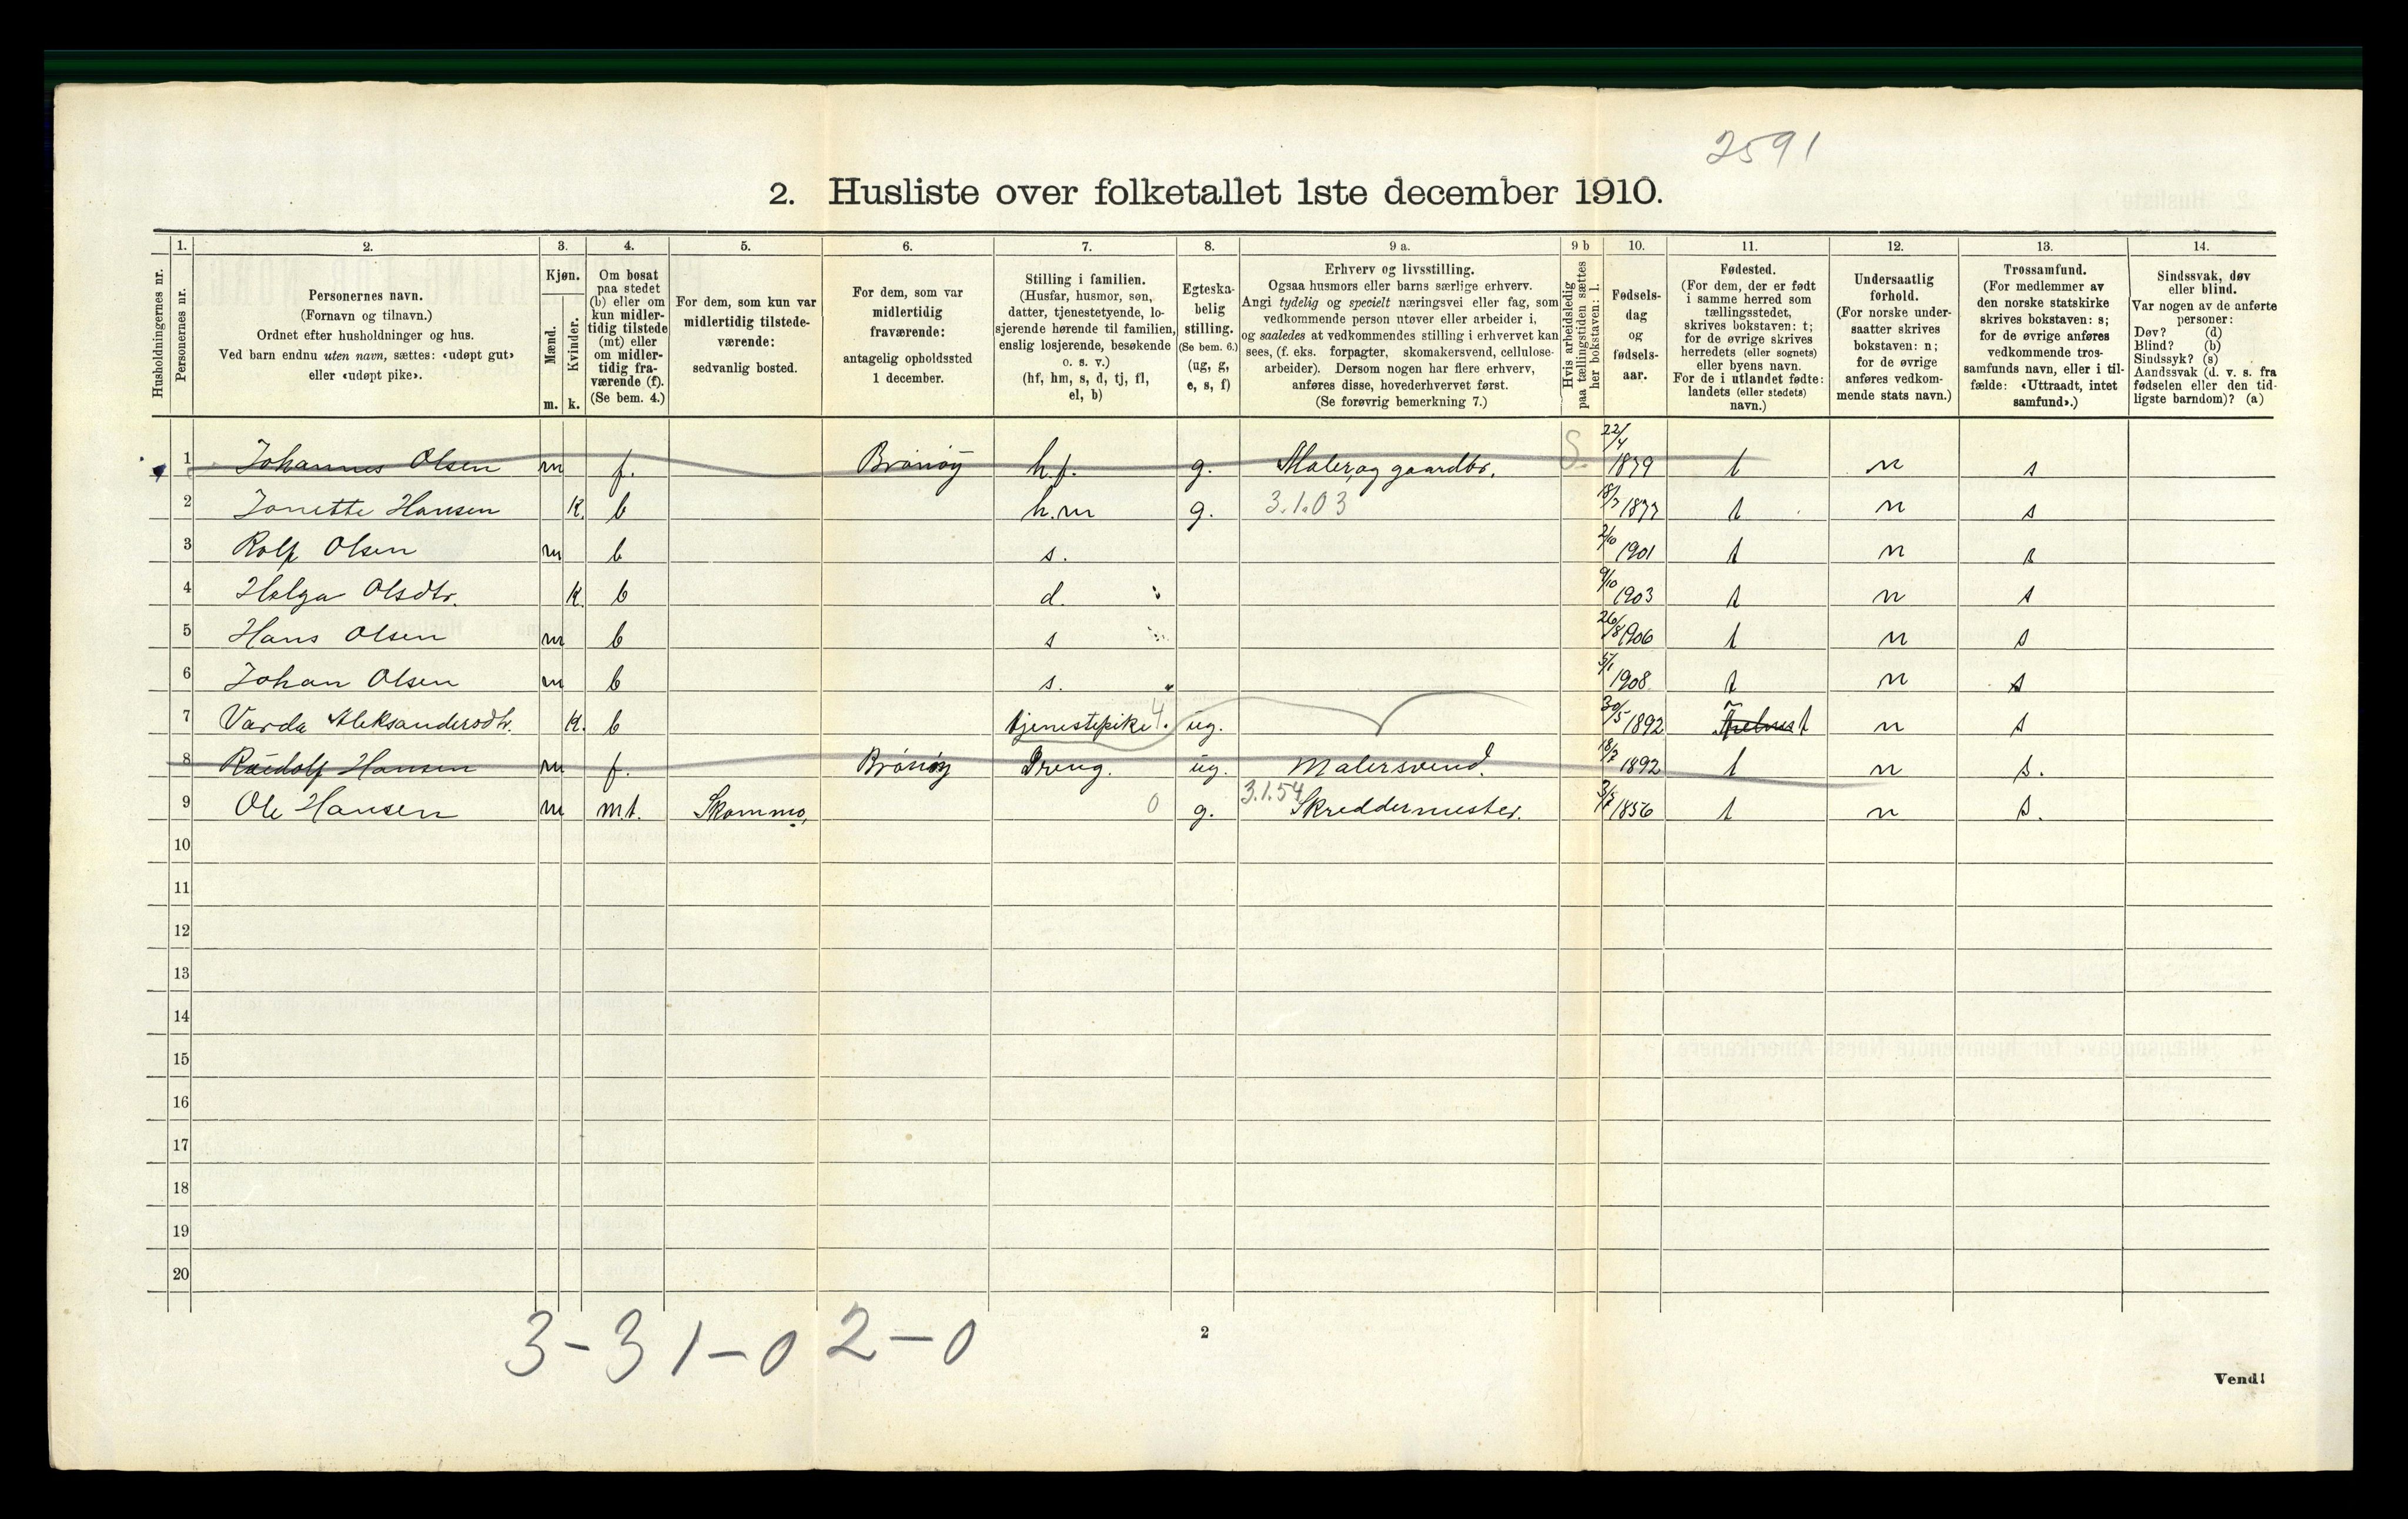 2591
2. Husliste over folketallet 1ste december 1910.
Husholdningernes nr.
1. Personernes nr.
2. Personernes navn.
(Fornavn og tilnavn.)
Ordnet efter husholdninger og hus.
Ved barn endnu uten navn, sættes: «udøpt gut»
eller «udøpt pike».
3. Kjøn.
Mænd. m.
Kvinder. k.
4. Om bosat
paa stedet
(b) eller om
kun midler-
tidig tilstede
(mt) eller
om midler-
tidig fra-
værende (f).
(Se bem. 4.)
5. For dem, som kun var
midlertidig tilstede-
værende:
sedvanlig bosted.
6. For dem, som var
midlertidig
fraværende:
antagelig opholdssted
1 december.
7. Stilling i familien.
(Husfar, husmor, søn,
datter, tjenestetyende, lo-
sjerende hørende til familien,
enslig losjerende, besøkende
o. s. v.)
(hf, hm, s, d, tj, fl,
el, b)
8. Egteska-
belig
stilling.
(Se bem. 6.)
(ug, g,
e, s, f)
9 a. Erhverv og livsstilling.
Ogsaa husmors eller barns særlige erhverv.
Angi tydelig og specielt næringsvei eller fag, som
vedkommende person utøver eller arbeider i,
og saaledes at vedkommendes stilling i erhvervet kan
sees, (f. eks. forpagter, skomakersvend, cellulose-
arbeider). Dersom nogen har flere erhverv,
anføres disse, hovederhvervet først.
(Se forøvrig bemerkning 7.)
9 b Hvis arbeidsledig
paa tællingstiden sættes
her bokstaven: l.
10. Fødsels-
dag
og
fødsels-
aar.
11. Fødested.
(For dem, der er født
i samme herred som
tællingsstedet,
skrives bokstaven: t;
for de øvrige skrives
herredets (eller sognets)
eller byens navn.
For de i utlandet fødte:
landets (eller stedets)
navn.)
12. Undersaatlig
forhold.
(For norske under-
saatter skrives
bokstaven: n;
for de øvrige
anføres vedkom-
mende stats navn.)
13. Trossamfund.
(For medlemmer av
den norske statskirke
skrives bokstaven: s;
for de øvrige anføres
vedkommende tros-
samfunds navn, eller i til-
fælde: «Uttraadt, intet
samfund».)
14. Sindssvak, døv
eller blind.
Var nogen av de anførte
personer:
Døv? (d)
Blind? (b)
Sindssyk? (s)
Aandssvak (d. v. s. fra
fødselen eller den tid-
ligste barndom)? (a)
1 Johannes Olsen m f. Brönöy h.f. g. Maler og gaardbr. S. 22/4 1879 t n s
2 Jonette Hansen K. b h.m g. 3.1.03 18/7 1877 t n s
3 Rolf Olsen m b s. 2/10 1901 t n s
4 Helga Olsdtr. K. b d. 9/10 1903 t n s
5 Hans Olsen m b s 26/8 1906 t n s
6 Johan Olsen m b s. 5/1 1908 t n s
7 Varda Aleksandersdtr. K. b tjenestepike 4. ug. 30/5 1892 t n s
8 Raedolf Hansen m f. Brönöy Dreng. ug. Malersvend. 18/7 1892 t n s.
9 Ole Hansen m m.t. Skommo, 0 g. 3.1.54 Skreddermester. 1856 t n s.
10
11
12
13
14
15
16
17
18
19
20
3-3 1-0 2-0
2
Vend!